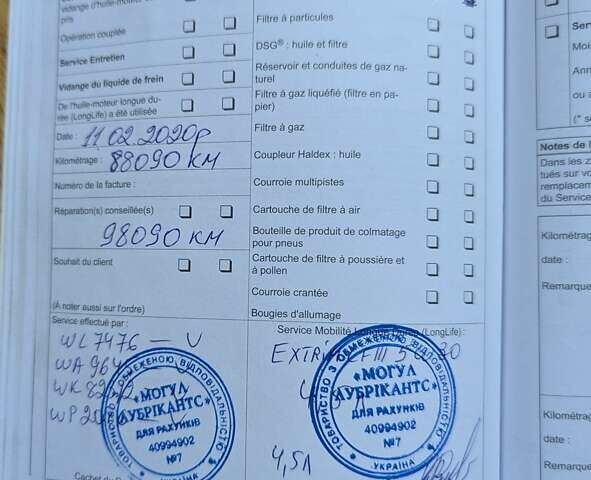 Vidange (l'huile-moteur
pris
Opération couplée
Service Entretien
Vidange du liquide de frein
De l'huile-moteur longue du-
rée (LongLife) a été utilisée
Date : 11.02.2020р
Kilométrage : 88090 КМ
Numéro de la facture :
Réparation(s) conseillée(s)
98090 КМ
Souhait du client
(À noter aussi sur l'ordre)
Service effectué par :
WL7476 — V
WA
WK
WP
ТОВАРИСТВО З ОБМЕЖЕНОЮ ВІДПОВІДАЛЬНІСТЮ
«МОГУЛ
ЛУБРІКАНТС»
ДЛЯ РАХУНКІВ
40994902
№7
Filtre à particules
DSG® : huile et filtre
Réservoir et conduites de gaz na-
turel
Filtre à gaz liquéfié (filtre en pa-
pier)
Filtre à gaz
Coupleur Haldex : huile
Courroie multipistes
Cartouche de filtre à air
Bouteille de produit de colmatage
pour pneus
Cartouche de filtre à poussière et
à pollen
Courroie crantée
Bougies d'allumage
Service Mobilité (LongLife) :
4,5л
ТОВАРИСТВО З ОБМЕЖЕНОЮ ВІДПОВІДАЛЬНІСТЮ
«МОГУЛ
ЛУБРІКАНТС»
ДЛЯ РАХУНКІВ
40994902
№7
УКРАЇНА
Ser
Moi
Ann
ou
Notes de l
Dans les z
tués sur vo
remplacem
du Service
Kilométrag
date :
Remarque
Kilométrag
date :
Remarque